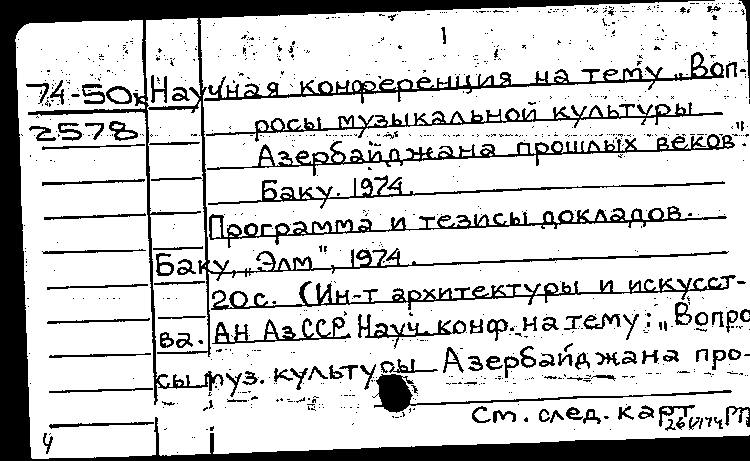 1
74-50к Научная конференция на тему „Воп-
2578 росы музыкальной культуры
Азербайджана прошлых веков".
Баку. 1974.
Программа и тезисы докладов.
Баку, „Элм", 1974.
20с. (Ин-т архитектуры и искусст-
ва. АН АзССР. Науч. конф. на тему: „Вопро
сы муз. культуры Азербайджана про-
См. след. карт
4